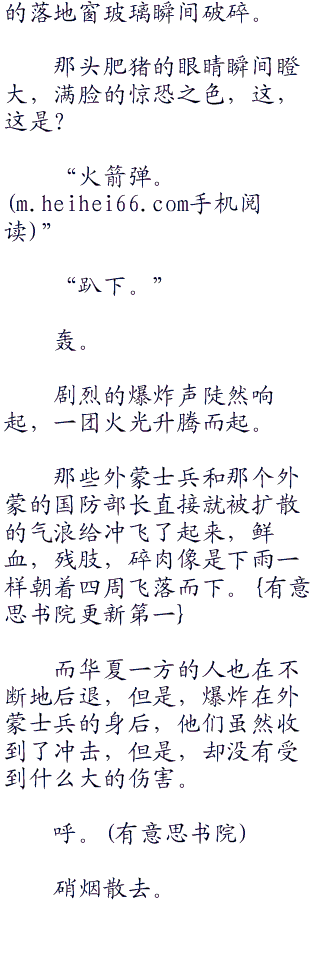 的落地窗玻璃瞬间破碎。
那头肥猪的眼睛瞬间瞪
大，满脸的惊恐之色，这，
这是？
“火箭弹。
(m.heihei66.com手机阅
读)”
“趴下。”
轰。
剧烈的爆炸声陡然响
起，一团火光升腾而起。
那些外蒙士兵和那个外
蒙的国防部长直接就被扩散
的气浪给冲飞了起来，鲜
血，残肢，碎肉像是下雨一
样朝着四周飞落而下。{有意
思书院更新第一}
而华夏一方的人也在不
断地后退，但是，爆炸在外
蒙士兵的身后，他们虽然收
到了冲击，但是，却没有受
到什么大的伤害。
呼。(有意思书院)
硝烟散去。